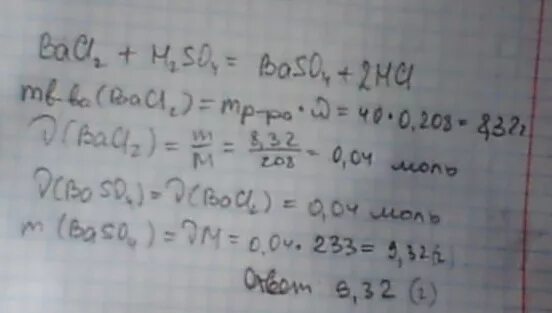 BaCl₂ + H₂SO₄ = BaSO₄ + 2HCl
mв-ва(BaCl₂) = mр-ра · ω = 40 · 0,208 = 8,32г
ν(BaCl₂) = m/M = 8,32/208 = 0,04 моль
ν(BaSO₄) = ν(BaCl₂) = 0,04 моль
m (BaSO₄) = νM = 0,04 · 233 = 9,32(г)
Ответ 9,32 (г)